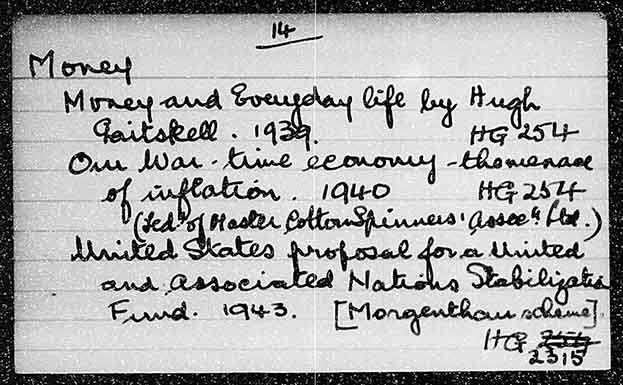 14
Money
Money and Everyday life by Hugh
Gaitskell. 1939. HG 254
Our War-time economy - the menace
of inflation. 1940 HG 254
(Fedn of Master Cotton Spinners' Assocns Ltd.)
United States proposal for a United
and Associated Nations Stabilization
Fund. 1943. [Morgenthau scheme].
HG 254
2315